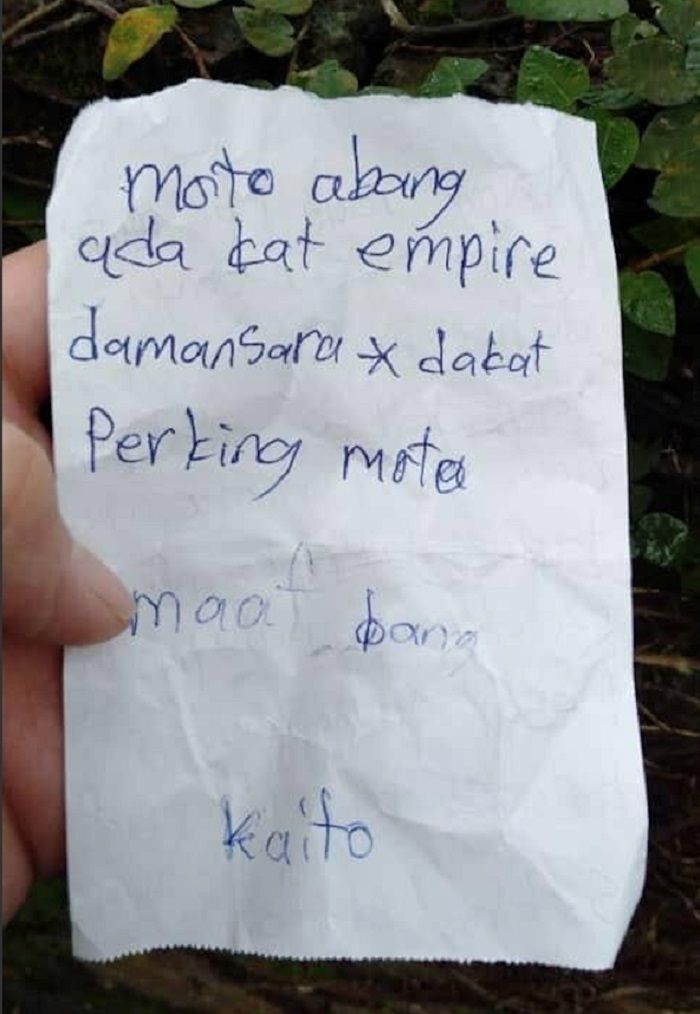 moto abang
ada kat empire
damansara * dakat
Perking moto
maaf bang
kaito